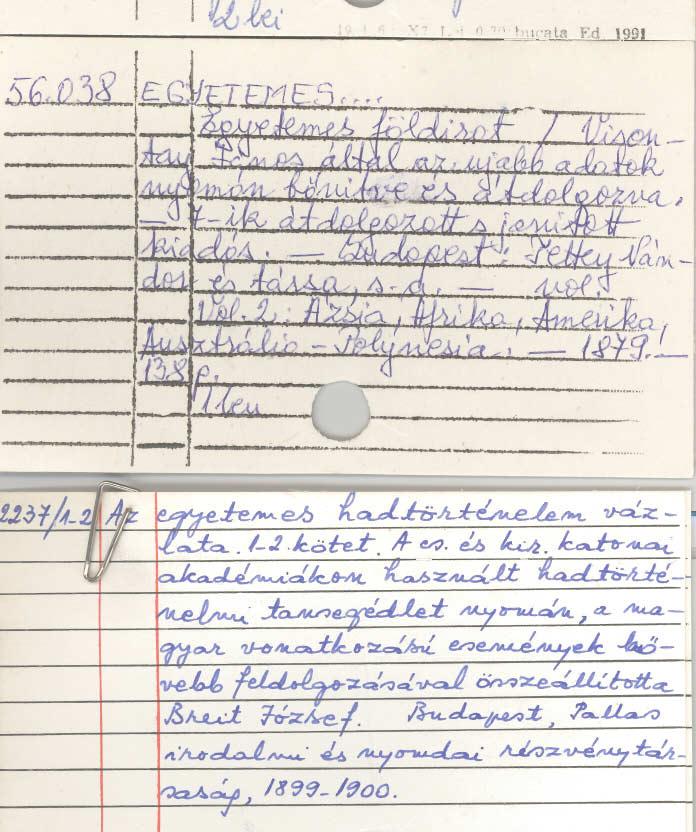 12 lei
bucata Ed. 1991
56.038 EGYETEMES....
Egyetemes földirat / Vison-
tay János által az ujabb adatok
nyomán bőnitve és átdolgozva.
— 7-ik átdolgozott s javított
kiadás. — Budapest: Pettey Nán-
dor és társa, s.a. — vol.
Vol. 2: Ázsia, Afrika, Amerika,
Ausztrália - Polynesia. — 1879. -
138 p.
1 leu
2237/1-2 Az egyetemes hadtörténelem váz-
lata. 1-2. kötet. A cs. és kir. katonai
akadémiákon használt hadtörté-
nelmi tansegédlet nyomán, a ma-
gyar vonatkozású események bő-
vebb feldolgozásával összeállította
Breit József. Budapest, Pallas
irodalmi és nyomdai részvénytár-
saság, 1899-1900.